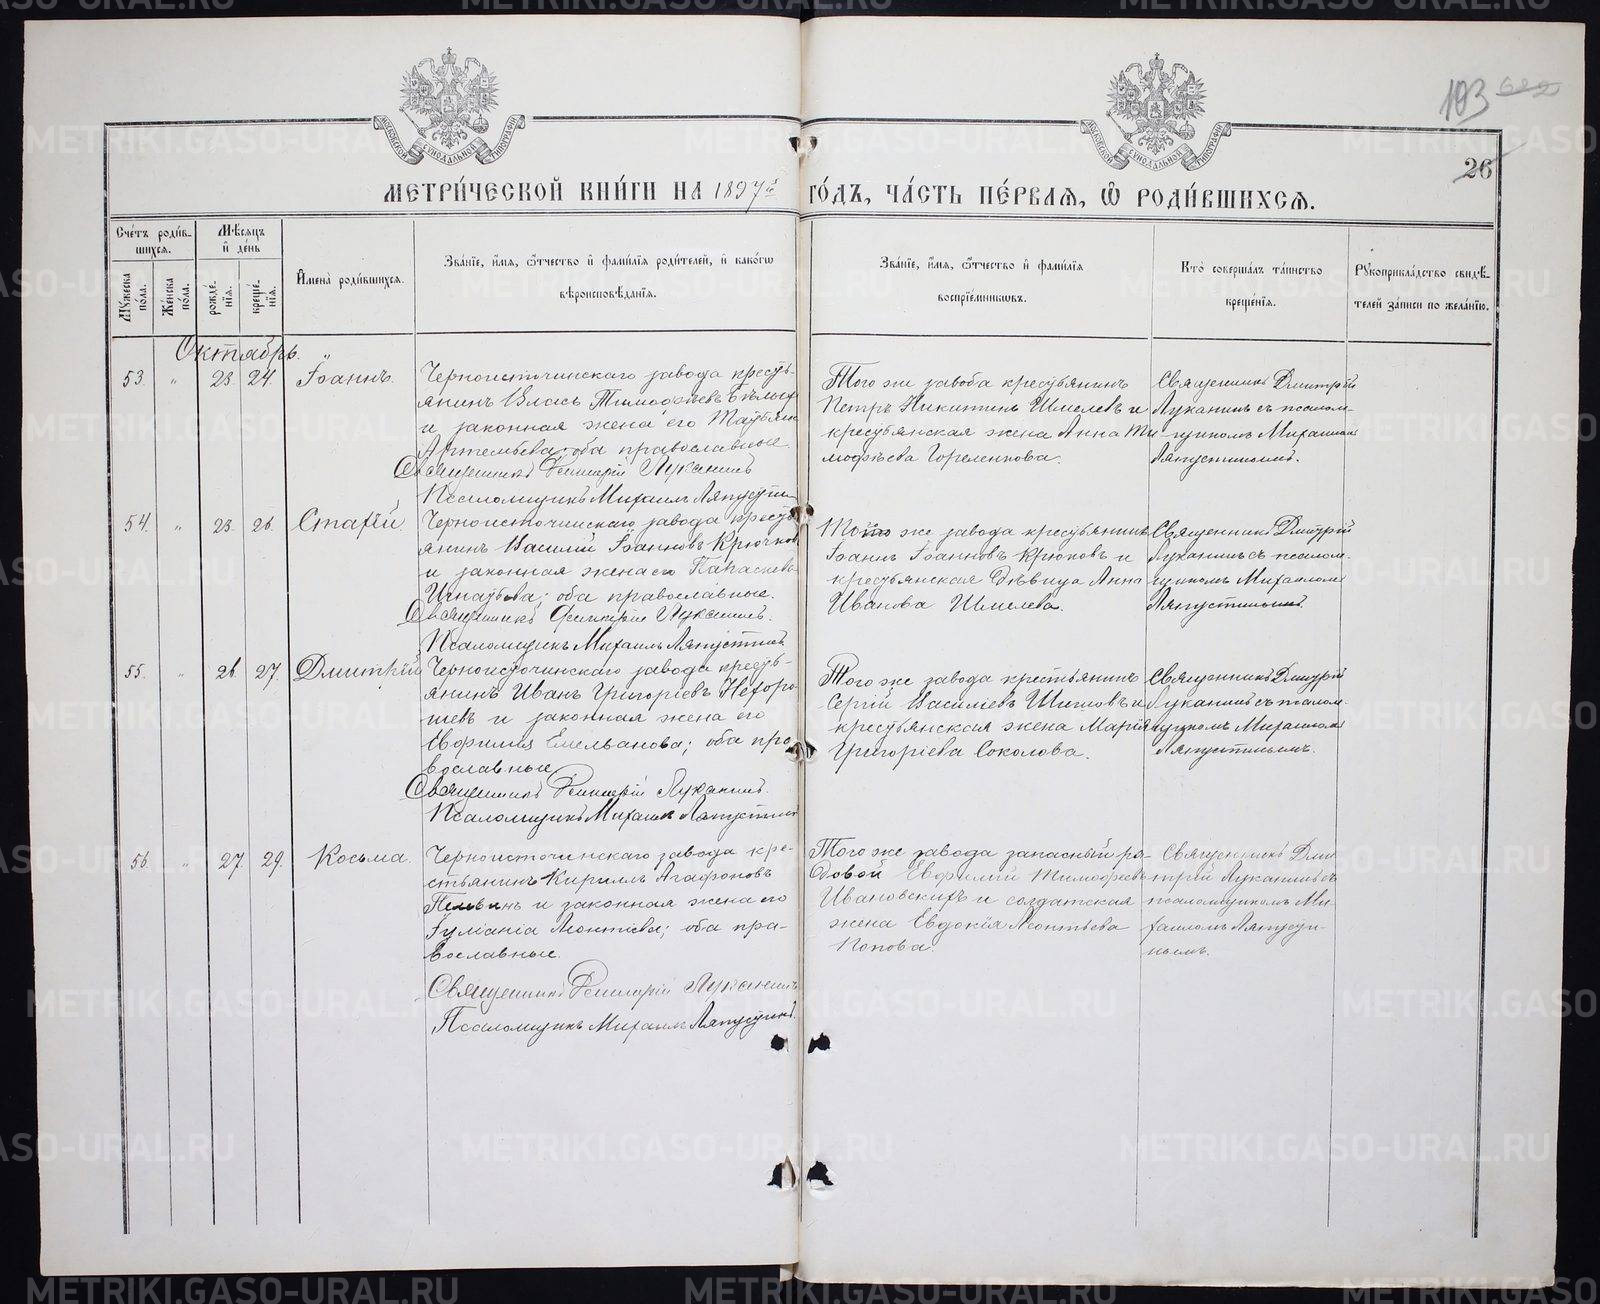 103
26
МЕТРИ́ЧЕСКОЙ КНИ́ГИ НА 1897й ГО́ДЪ, ЧА́СТЬ ПЕ́РВАѦ, Ѽ РОДИ́ВШИХСѦ.
Сче́тъ роди́в-
шихсѧ.
Мѣ́сѧцъ
и҆ де́нь
Мꙋ́жеска
по́ла.
Же́нска
по́ла.
рожде́-
нїѧ.
креще́-
нїѧ.
И҆мена̀ роди́вшихсѧ.
Зва́нїе, и҆́мѧ, ѻ҆́тчество и҆ фами́лїѧ роди́телей, и҆ како́гѡ
вѣроисповѣ́данїѧ.
Зва́нїе, и҆́мѧ, ѻ҆́тчество и҆ фами́лїѧ
воспрїе́мникѡвъ.
Кто̀ соверша́лъ та́инство
креще́нїѧ.
Рꙋкоприкла́дство свидѣ́-
телей за́писи по жела́нїю.
Октябрь.
53. " 23. 24. Іоаннъ.
Черноисточинскаго завода кресть-
янинъ Власъ Тимофѣевъ Бѣлыхъ
и законная жена его Татьяна
Артемьева; оба православные.
Священникъ Димитрій Луканинъ
Псаломщикъ Михаилъ Ляпустинъ
Того же завода крестьянинъ
Петръ Никитинъ Шмелевъ и
крестьянская жена Анна Ти-
мофѣева Гореленкова.
Священникъ Дмитрій
Луканинъ съ псалом-
щикомъ Михаиломъ
Ляпустинымъ.
54. " 23. 26. Стахій
Черноисточинскаго завода кресть-
янинъ Василій Іоанновъ Крючковъ
и законная жена его Параскева
Игнатьева; оба православные.
Священникъ Димитрій Луканинъ.
Псаломщикъ Михаилъ Ляпустинъ
Того же завода крестьянинъ
Іоаннъ Іоанновъ Крюковъ и
крестьянская дѣвица Анна
Иванова Шмелева.
Священникъ Дмитрій
Луканинъ съ псалом-
щикомъ Михаиломъ
Ляпустинымъ.
55. " 26. 27. Дмитрій
Черноисточинскаго завода кресть-
янинъ Иванъ Григоріевъ Нехоро-
шевъ и законная жена его
Евфимія Емельянова; оба пра-
вославные
Священникъ Димитрій Луканинъ.
Псаломщикъ Михаилъ Ляпустинъ
Того же завода крестьянинъ
Сергій Василіевъ Шиловъ и
крестьянская жена Марія
Григоріева Соколова.
Священникъ Дмитрій
Луканинъ съ псалом-
щикомъ Михаиломъ
Ляпустинымъ.
56. " 27. 29. Косьма.
Черноисточинскаго завода кре-
стьянинъ Кириллъ Агафоновъ
и законная жена его
Іуліанія Леонтіева; оба пра-
вославные.
Священникъ Димитрій Луканинъ
Псаломщикъ Михаилъ Ляпустинъ.
Того же завода запасный ря-
довой Евфимій Тимофеевъ
Ивановскихъ и солдатская
жена Евдокія Леонтьева
Попова.
Священникъ Дми-
трій Луканинъ съ
псаломщикомъ Ми-
хаиломъ Ляпусти-
нымъ.